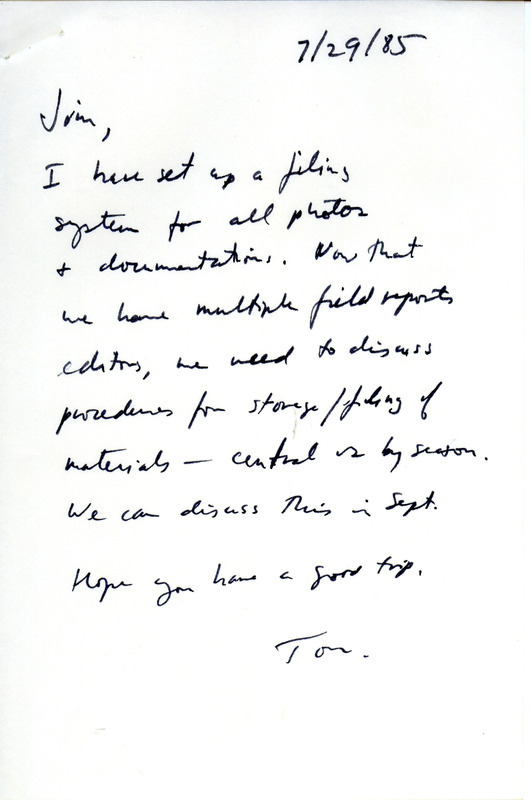 7/29/85
Jim,
I have set up a filing
system for all photos
& documentations. Now that
we have multiple field reports
editors, we need to discuss
procedures for storage/filing of
materials — central vs by season.
We can discuss this in Sept.
Hope you have a good trip.
Tom.